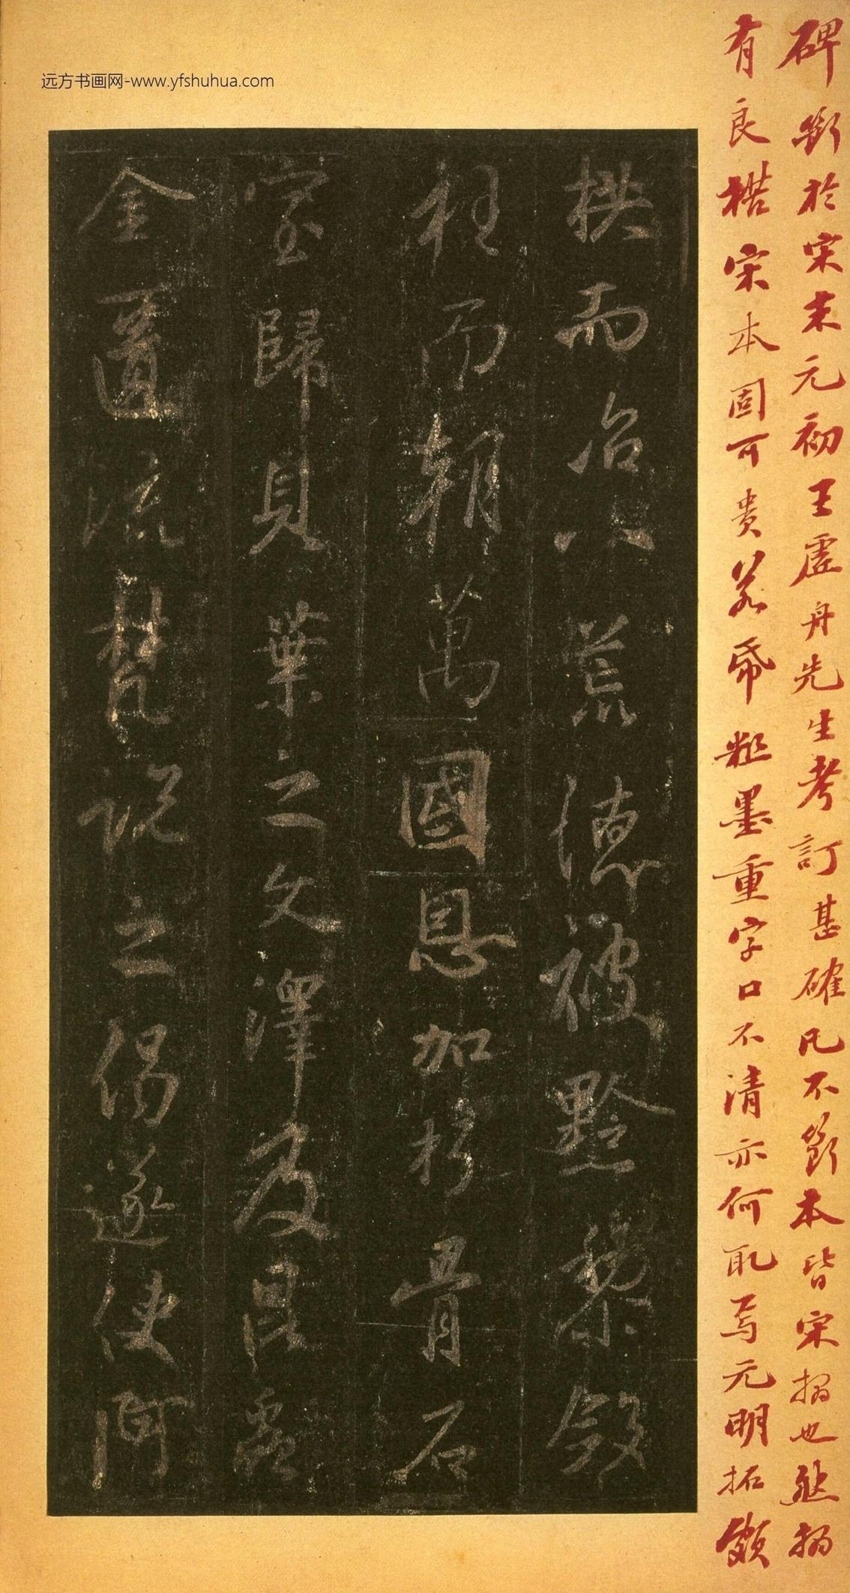 远方书画网-www.yfshuhua.com
碑斷於宋末元初王虛舟先生考訂甚確凡不斷本皆宋搨也然搨
有良楛宋本固可貴若帋粗墨重字口不清亦何取焉元明拓頗
拱而治八荒德被黔黎斂
衽而朝萬國恩加朽骨石
室歸貝葉之文澤及昆蟲
金匱流梵說之偈遂使阿